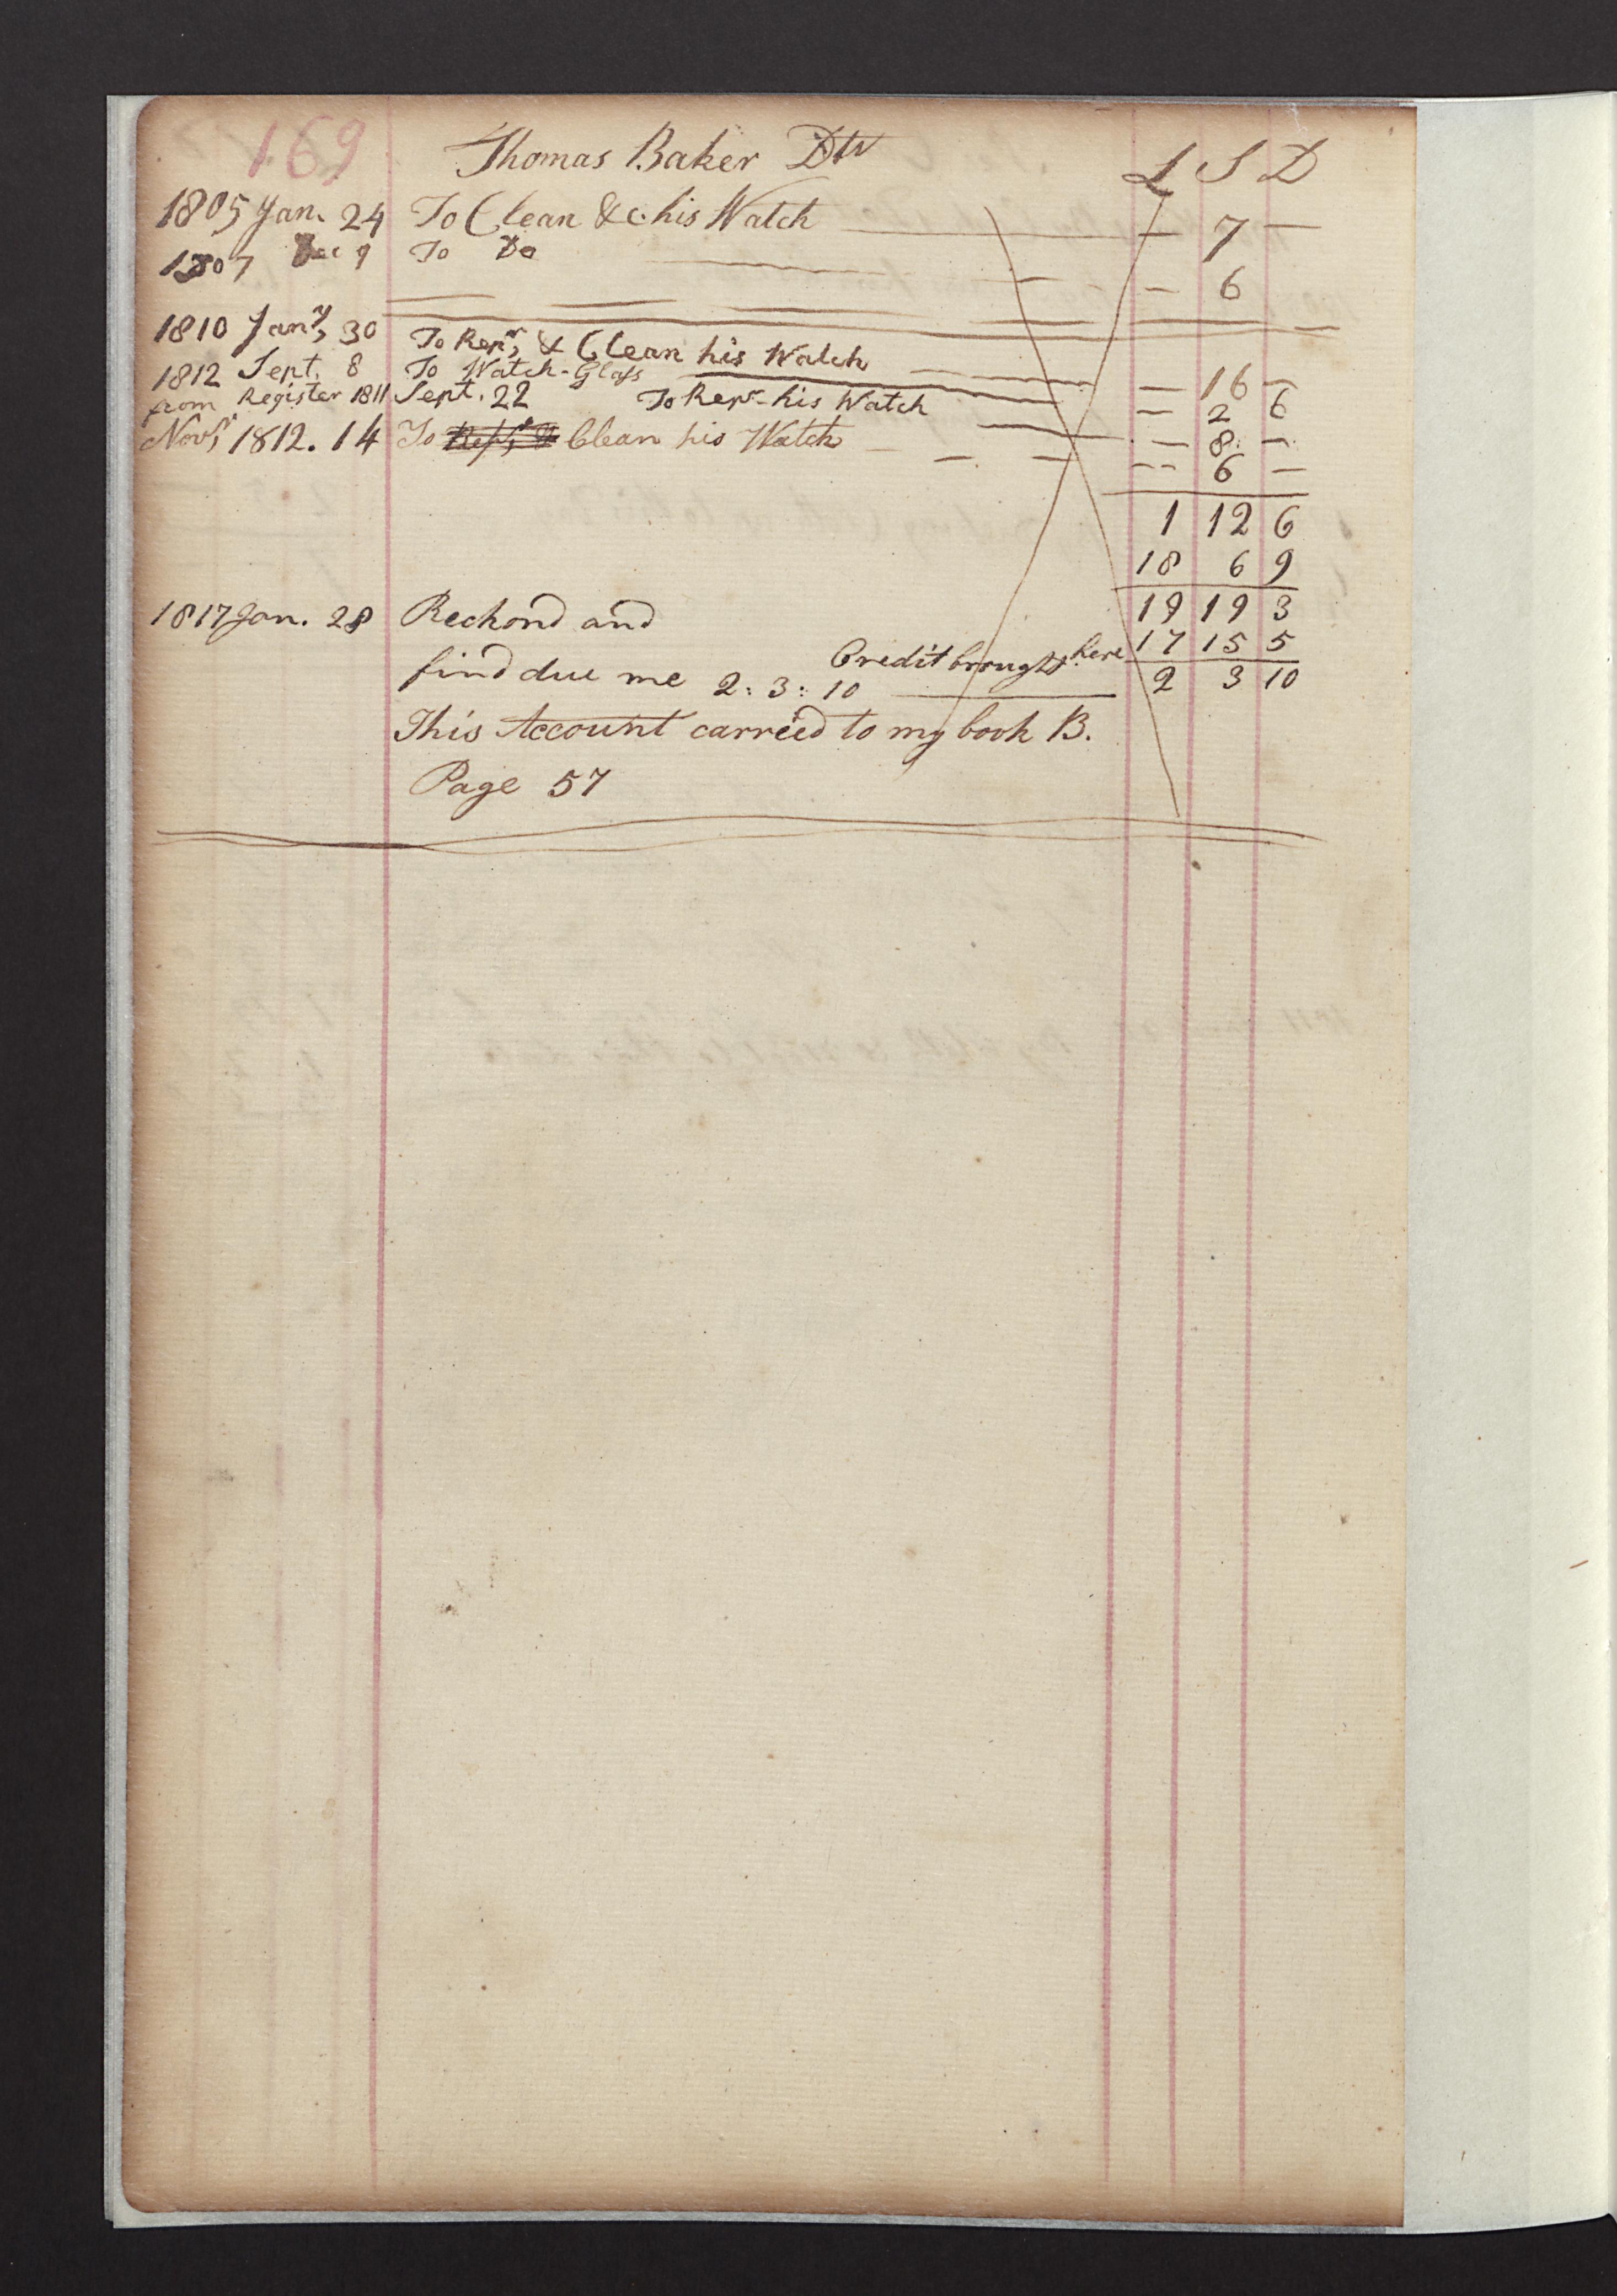 169 Thomas Baker Dtr L S D
1805 Jan. 24 To Clean &c. his Watch — 7 —
1807 Dec 9 To Do — 6
1810 Jany, 30 To Repr, & Clean his Watch — 16 —
1812 Sept. 8 To Watch-Glass — 2 6
from Register 1811 Sept. 22 To Repr his Watch — 8: —
Novr, 1812. 14 To Repr, & Clean his Watch — 6 —
1 12 6
18 6 9
1817 Jan. 28 Reckond and 19 19 3
Credit brought here 17 15 5
find due me 2: 3: 10 — 2 3 10
This Account carried to my book B.
Page 57